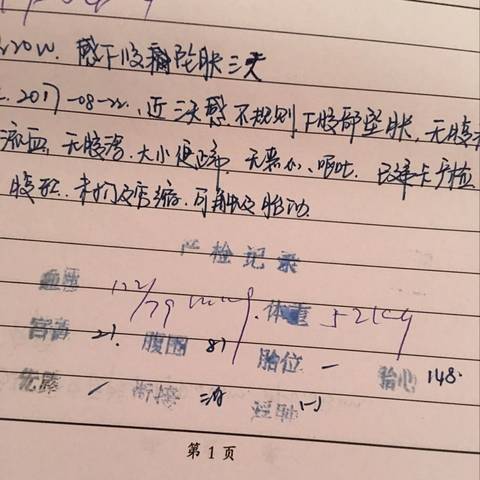 20W. 感下腹痛坠胀三天
2017-08-22. 近三天感不规则下腹部坠胀, 无腹
流血, 无腹泻. 大小便正常. 无恶心、呕吐. 已建卡产检
腹软. 未扪及宫缩. 可触及胎动.
产检记录
血压 122/79mmHg. 体重 52kg
宫高 21. 腹围 81 胎位 - 胎心 148.
先露 / 衔接 浮肿 (-)
第 1 页